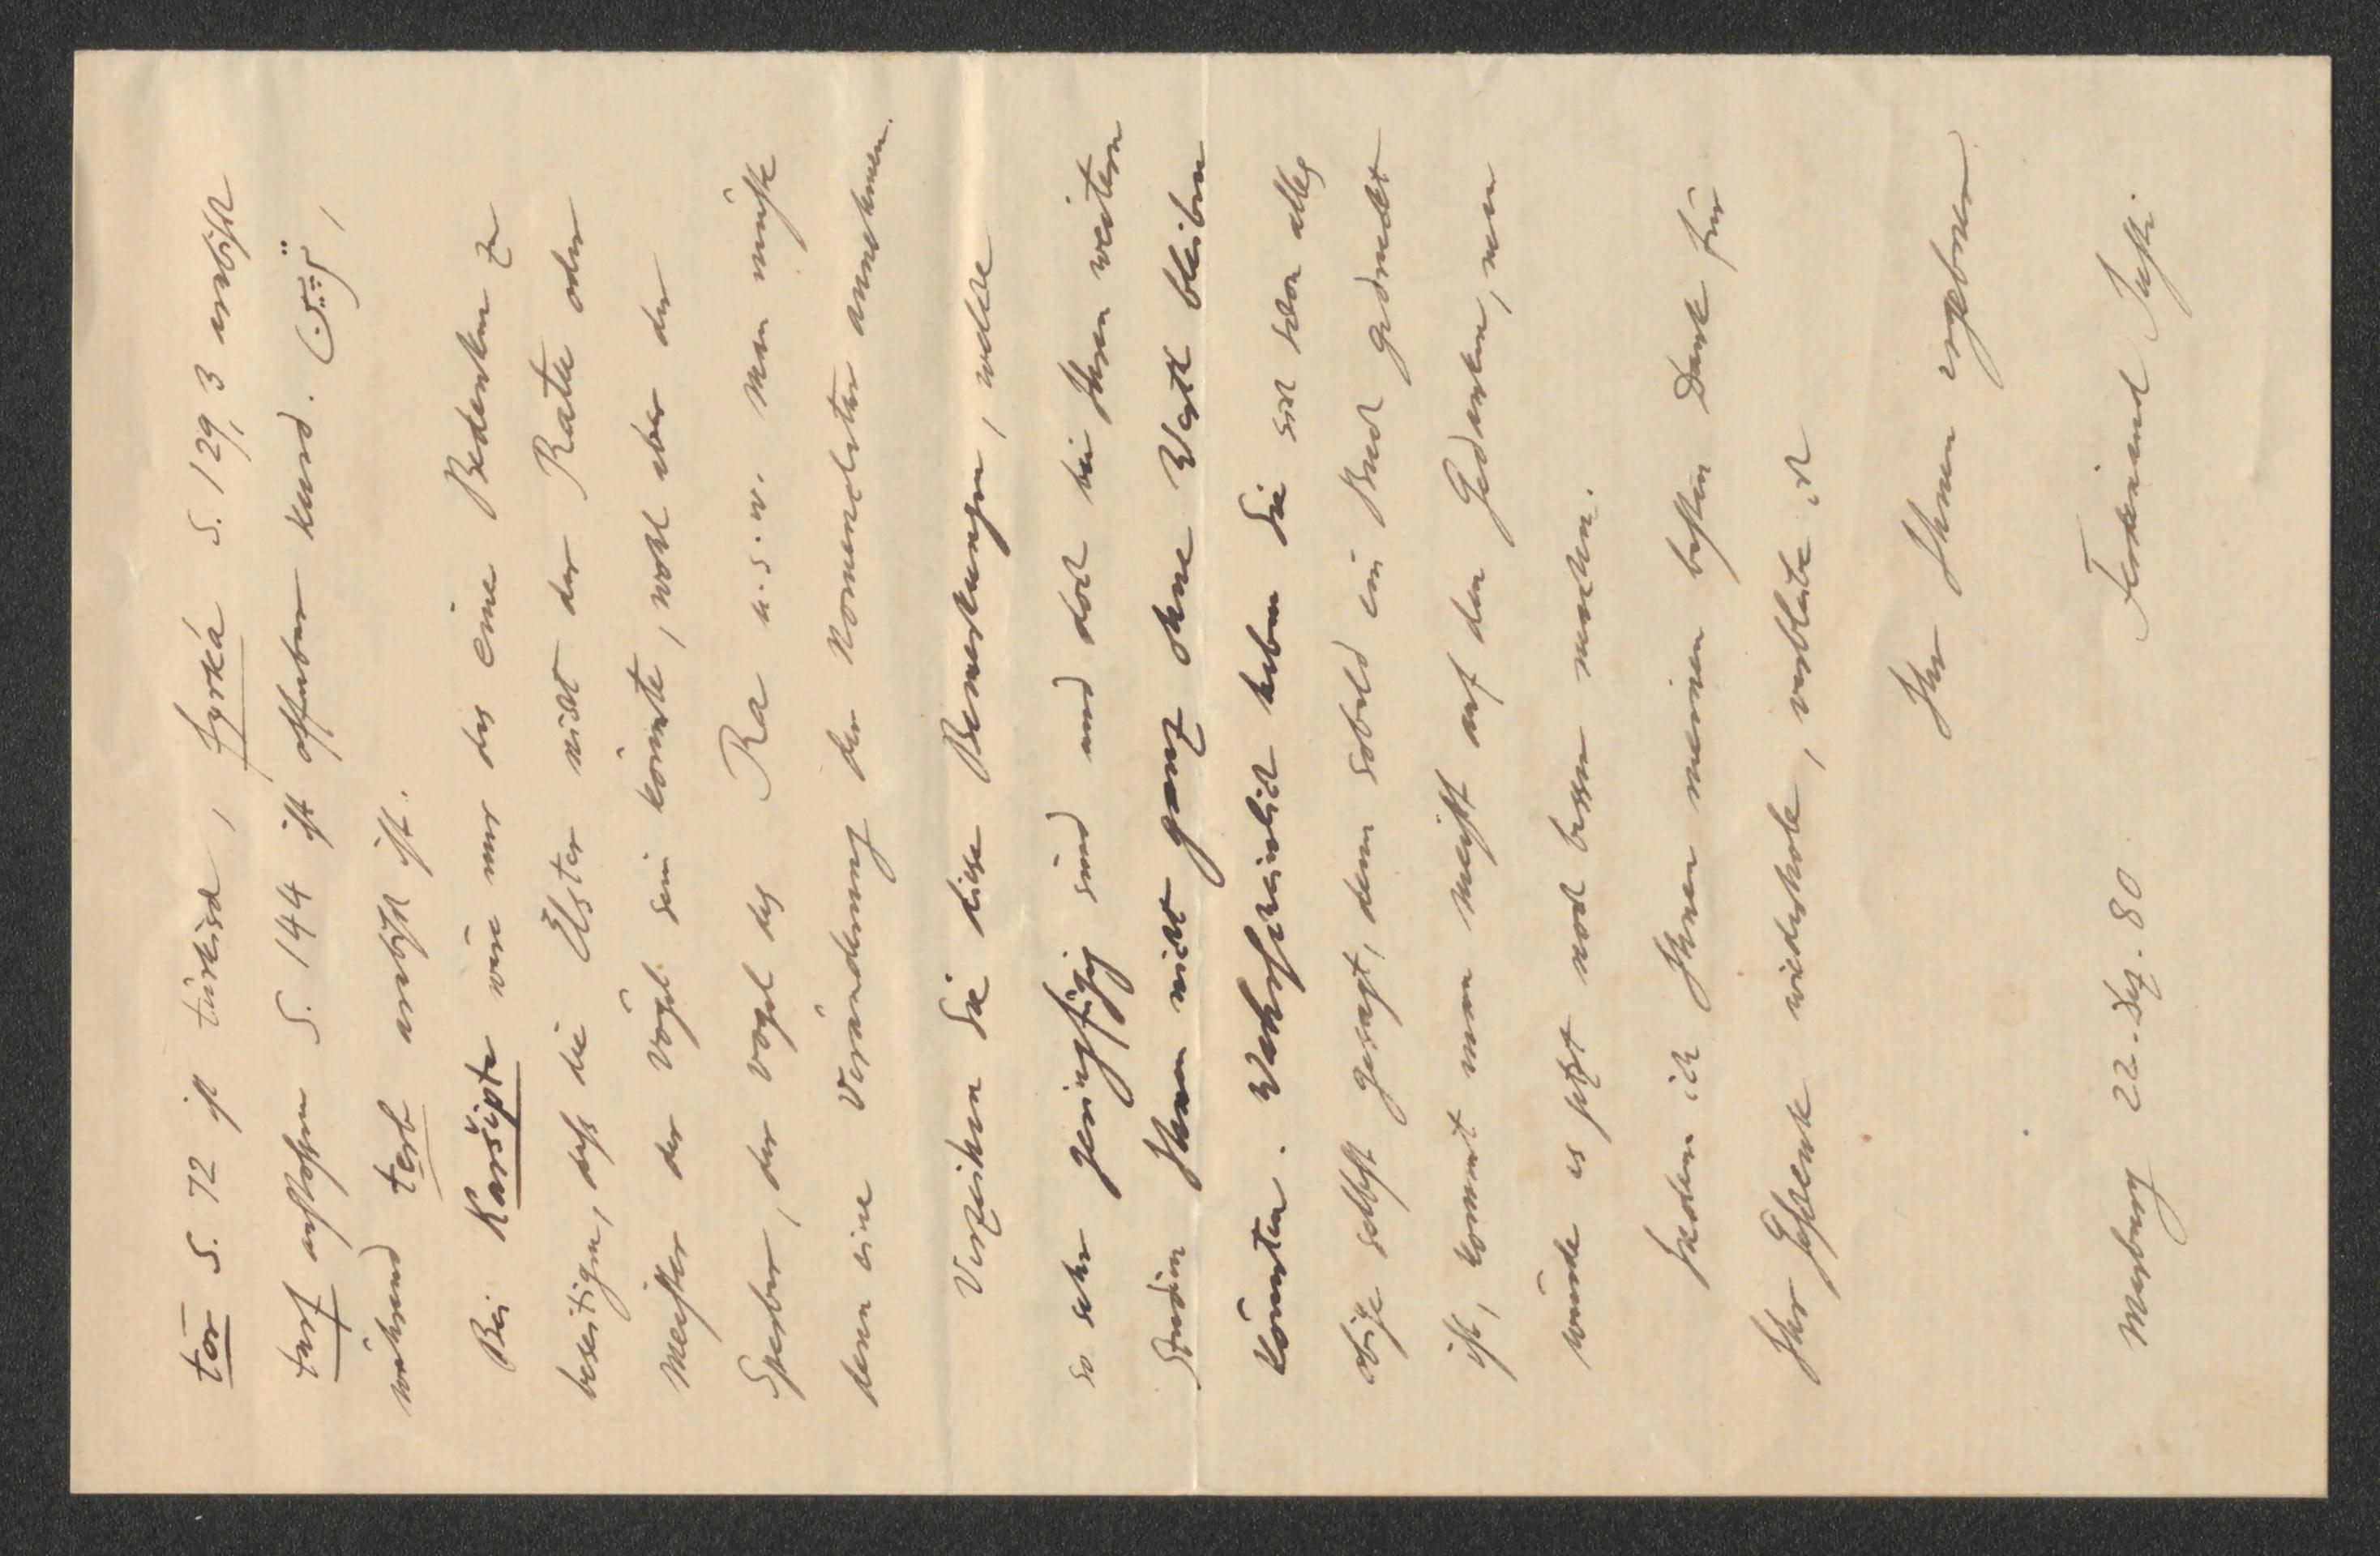 tōr S. 72 ist türkisch, fyrká S. 129,3 arabisch
turf S. 144 ist offenbar kurd.
während terb arabisch ist.
Bei Karšipta wäre nur das eine Bedenken zu
beseitigen, dass die Elster nicht der Ratu oder
Meister der Vögel sein könnte, wohl aber der
Sperber, der Vogel des Ra u.s.w. Man müsste
denn eine Veränderung der Nomenclatur annehmen.
Verzeihen Sie diese Bemerkungen, welche
so sehr geringfügig sind und doch bei Ihren weitern
Studien Ihnen nicht ganz ohne Werth bleiben
könnten. Wahrscheinlich haben Sie sich schon alles
obige selbst gesagt, denn sobald ein Buch gedruckt
ist, kommt man meist auf den Gedanken, man
würde es jetzt noch besser machen.
Indem ich Ihnen meinen besten Dank für
Ihr Geschenk wiederhole, verbleibe ich
Ihr Ihnen ergebner
Marburg 22. Dez. 80. Ferdinand Justi.